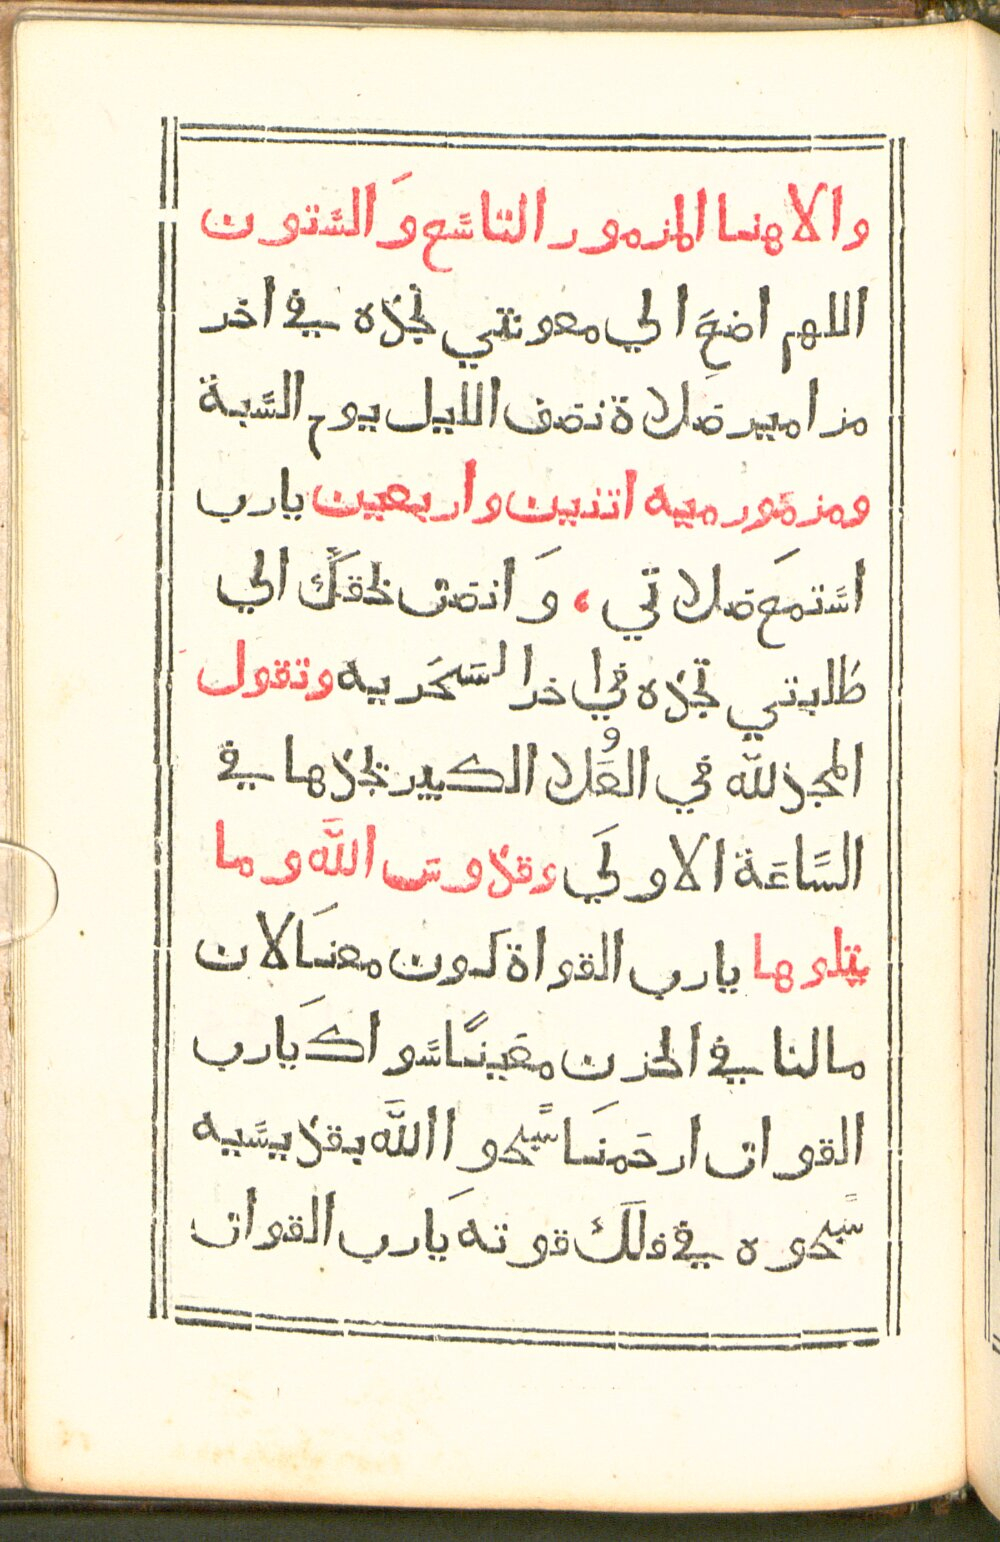 والاهنا المزمور التاسع والستون
اللهم اضغ الي معونتي تجده في اخر
مزامير صلاة نصف الليل يوم السبة
ومزمور ميه اتنيين واربعين يارب
استمع صلاتي ، وانصت لحقك الي
طلبتي تجده في اخر السحريه وتقول
المجد لله في العلا الكبير تجدها في
الساعة الاولي وقدوس الله وما
يتلوها يارب القواة كون معنا لان
مالنا في الحزن معينا سواك يارب
القوات ارحمنا سبحوا الله بقديسيه
سبحوه في فلك قوته يارب القوات